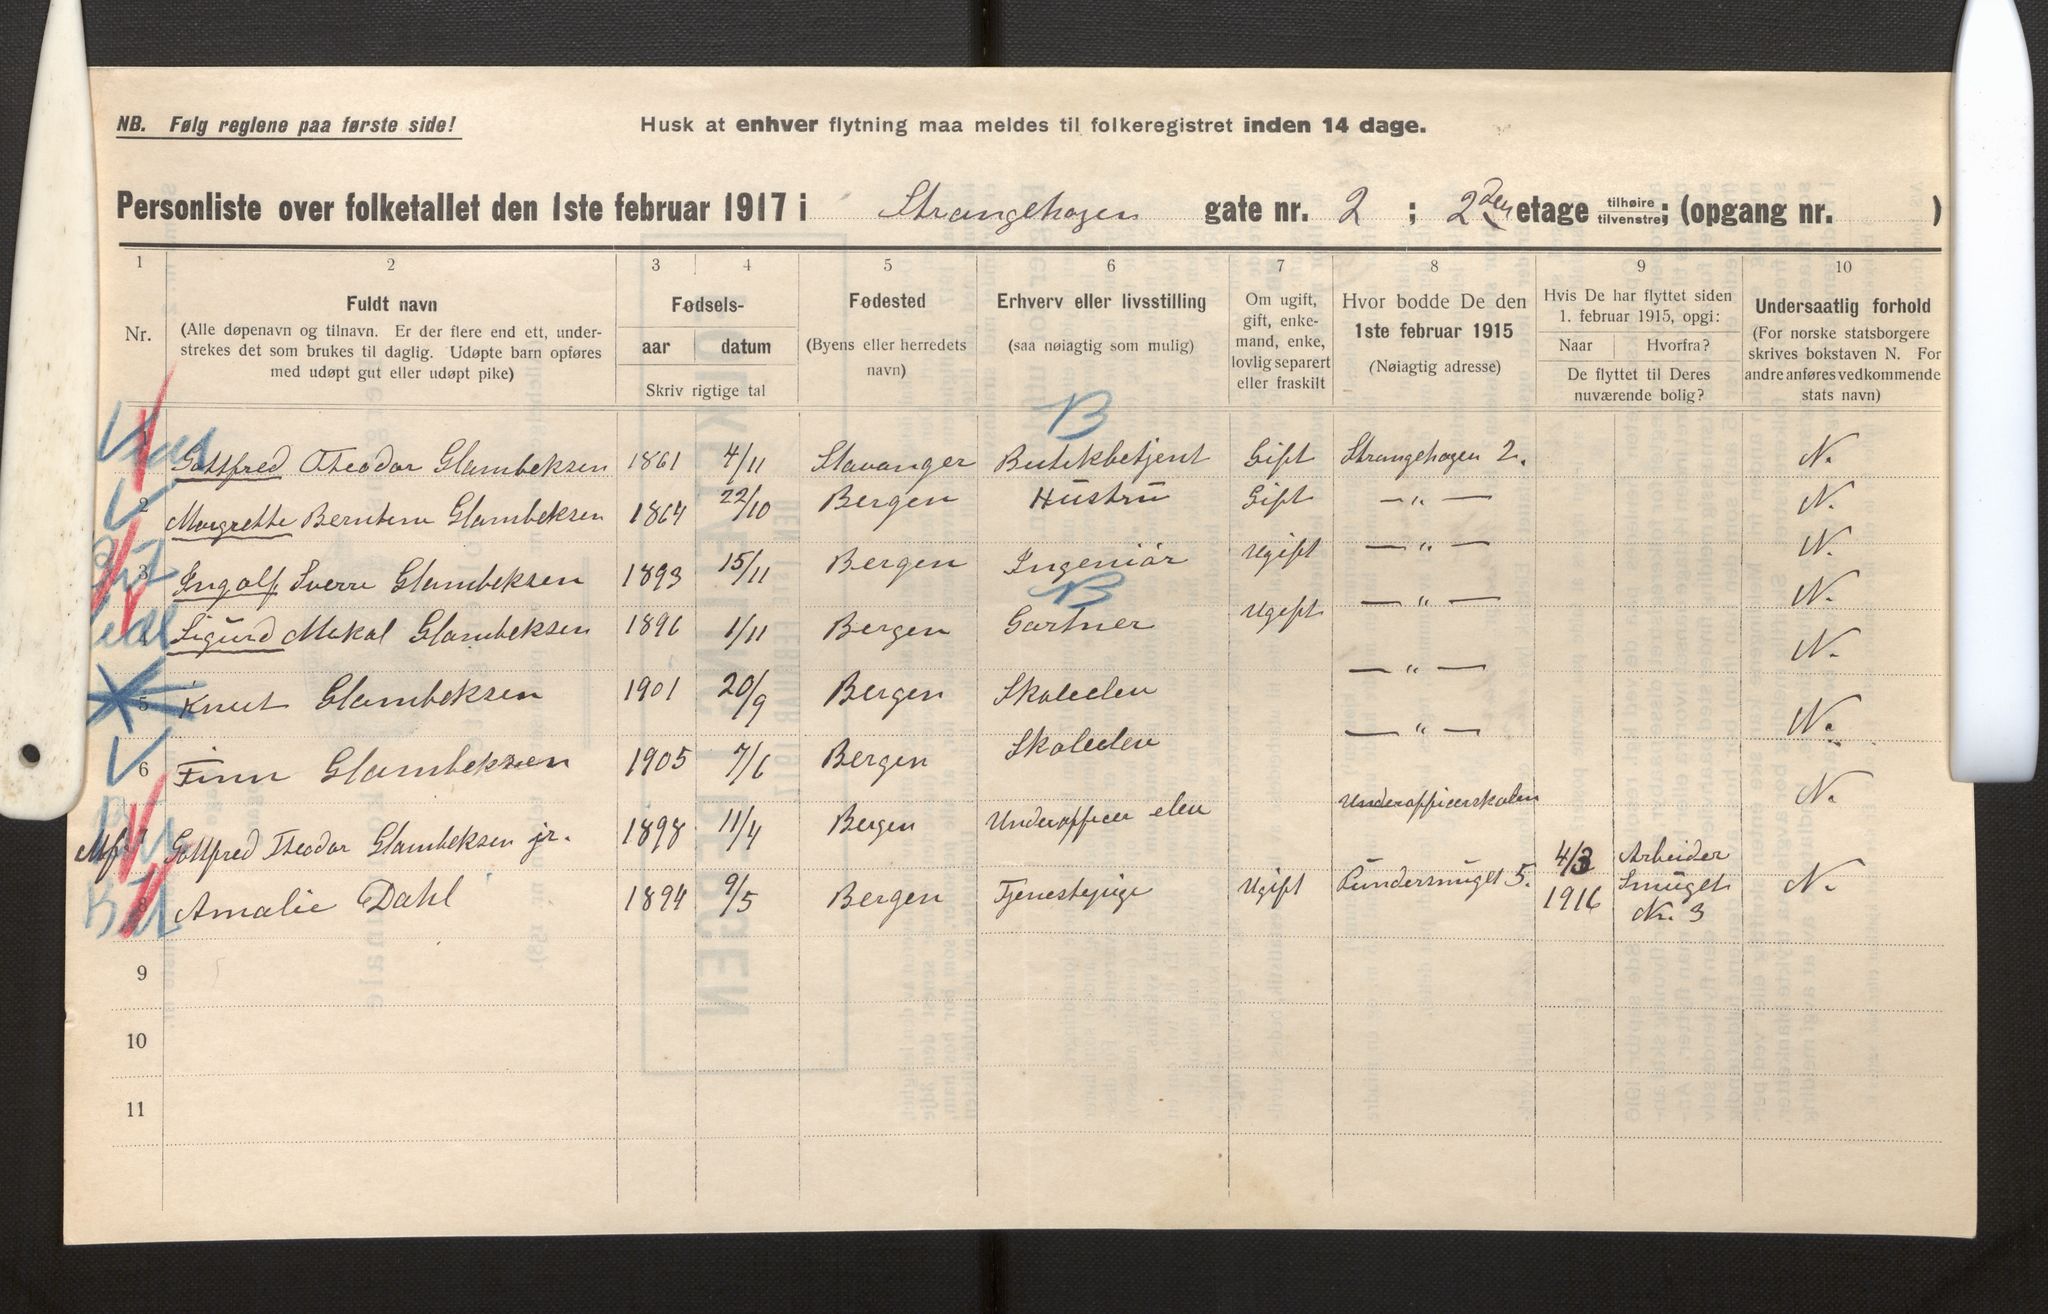 NB. Følg reglene paa første side!
Husk at enhver flytning maa meldes til folkeregistret inden 14 dage.
Personliste over folketallet den 1ste februar 1917 i Strangehagen gate nr. 2 ; 2den etage tilhøire tilvenstre; (opgang nr. )
1 2 3 4 5 6 7 8 9 10
Nr.
Fuldt navn
(Alle døpenavn og tilnavn. Er der flere end ett, under-
strekes det som brukes til daglig. Udøpte barn opføres
med udøpt gut eller udøpt pike)
Fødsels-
aar datum
Skriv rigtige tal
Fødested
(Byens eller herredets
navn)
Erhverv eller livsstilling
(saa nøiagtig som mulig)
Om ugift,
gift, enke-
mand, enke,
lovlig separert
eller fraskilt
Hvor bodde De den
1ste februar 1915
(Nøiagtig adresse)
Hvis De har flyttet siden
1. februar 1915, opgi:
Naar Hvorfra?
De flyttet til Deres
nuværende bolig?
Undersaatlig forhold
(For norske statsborgere
skrives bokstaven N. For
andre anføres vedkommende
stats navn)
B
1 Gottfred Theodor Glambeksen 1861 4/11 Stavanger Butikbetjent Gift Strangehagen 2. N.
2 Margrethe Glambeksen 1864 22/10 Bergen Hustru Gift — „ — N.
3 Ingolf Sverre Glambeksen 1893 15/11 Bergen Ingeniør Ugift — „ — N.
B
4 Sigurd Mikal Glambeksen 1896 1/11 Bergen Gartner Ugift — „ — N.
5 Knut Glambeksen 1901 20/9 Bergen Skoleelev — „ — N.
6 Finn Glambeksen 1905 7/6 Bergen Skoleelev — „ — N.
7 Gottfred Theodor Glambeksen jr. 1898 11/4 Bergen Underofficer elev Underofficerskolen N.
8 Amalie Dahl 1894 9/5 Bergen Tjenestepige Ugift Pundersmuget 5. 4/3 1916 Arbeider Smuget Nr. 3 N.
9
10
11